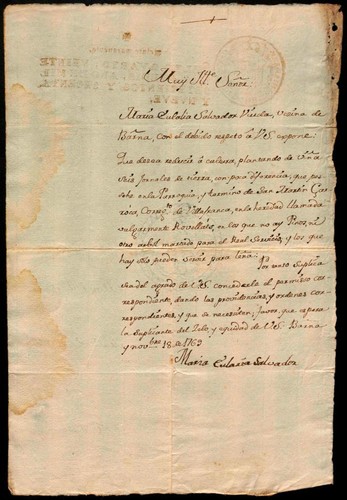 Muy Ille. Señor.
Maria Eulalia Salvador Viuda, Vecina de
Barna, con el debido respeto a V.S. expone:
Que desea reducir á cultura, plantando de viña
seis jornales de tierra, con poca diferencia, que pos-
sehe en la Parroquia, y termino de San Martin
roca, Correg.to de Villafranca, en la heredad llamada
vulgarmente Rovellats, en los que no ay Pinos, ni
otro arbol marcado para el Real Servicio, y los que
hay solo pueden servir para leña:
Por tanto Suplica
sea del agrado de V.S. concederle el permisso cor-
respondiente, dando las providencias, y ordenes cor-
respondientes, y que se necessiten; favor, que espera
la Suplicante del Zelo, y equidad de V.S. Barna
y novbre 18. de 1769
Maria Eulalia Salvador